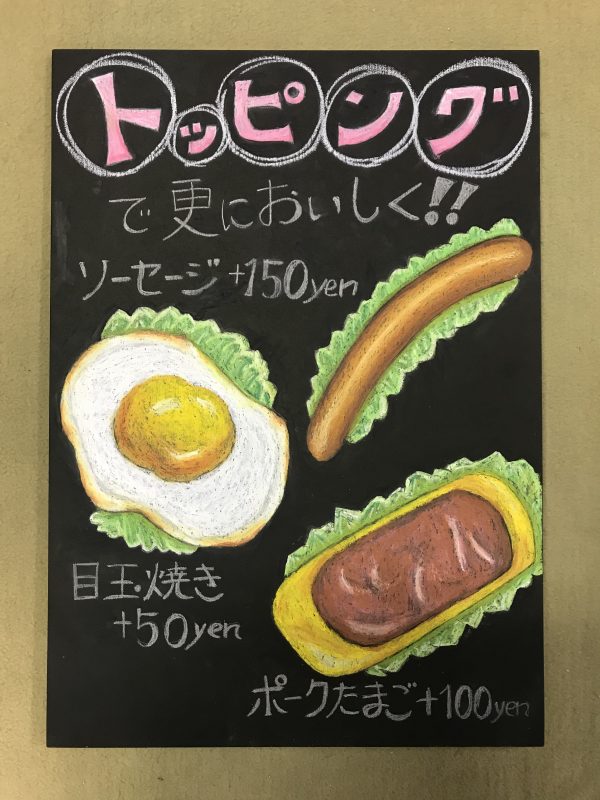 トッピング
で更においしく!!
ソーセージ +150yen
目玉焼き
+50yen
ポークたまご+100yen